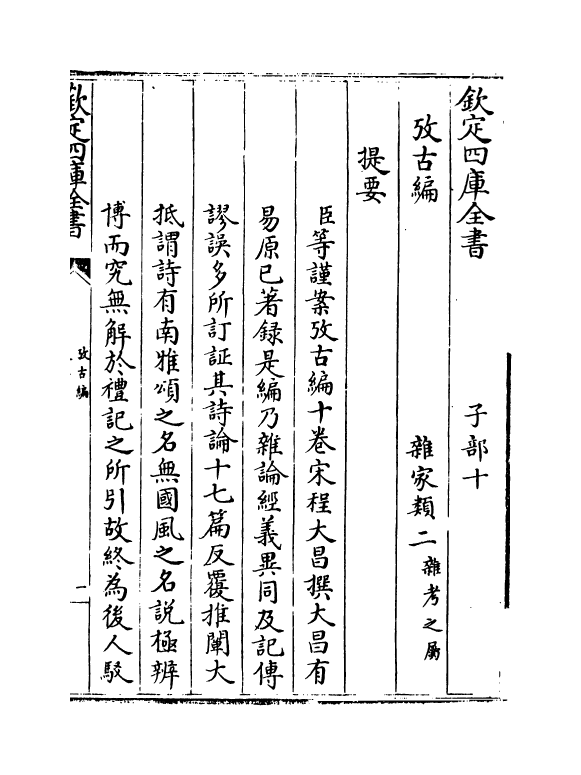 欽定四庫全書　子部十
攷古編　雜家類二雜考之屬
提要
臣等謹案攷古編十卷宋程大昌撰大昌有
易原已著録是編乃雜論經義異同及記傳
謬誤多所訂証其詩論十七篇反覆推闡大
抵謂詩有南雅頌之名無國風之名説極辨
博而究無解於禮記之所引故終為後人駁
欽定四庫全書　攷古編　一